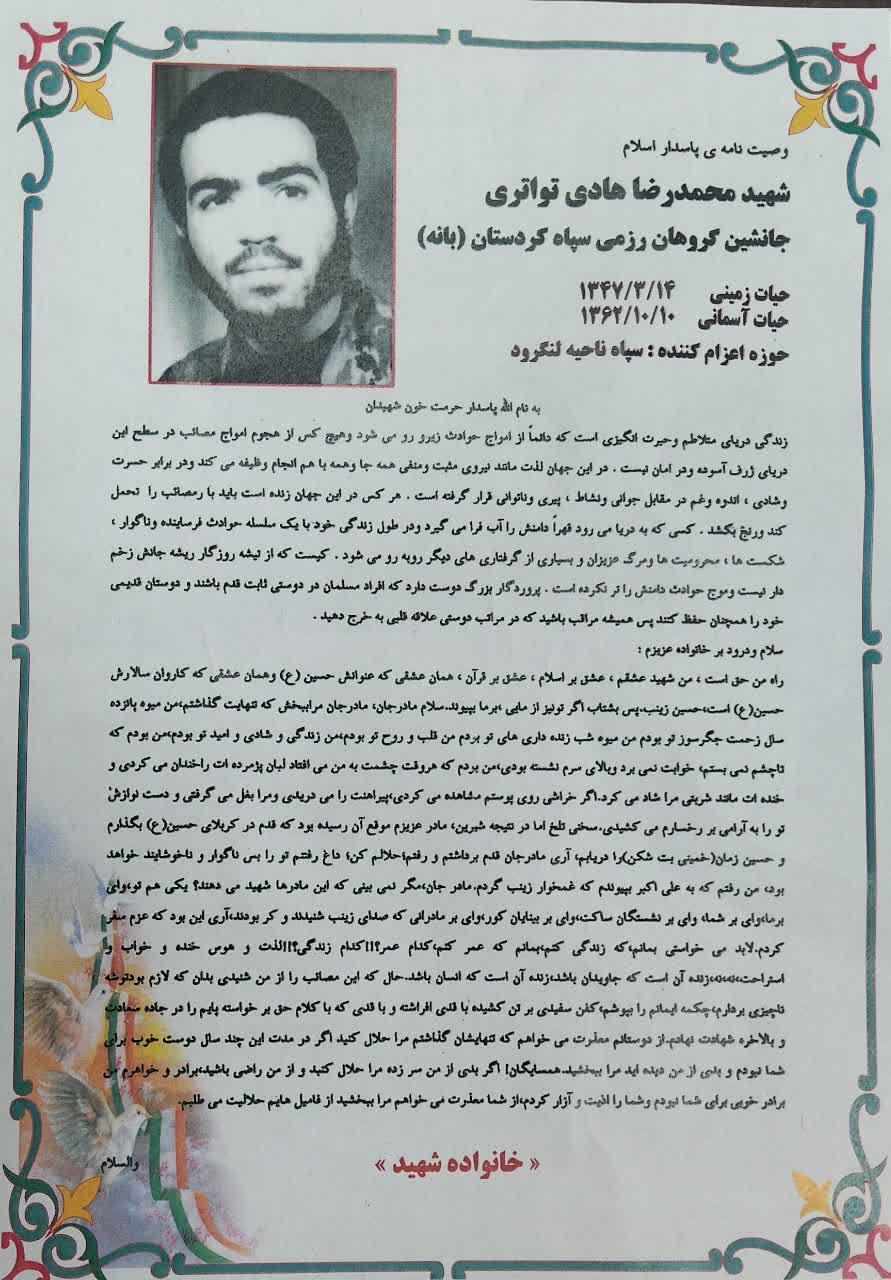 وصیت نامه ی پاسدار اسلام
شهید محمدرضا هادی تواتری
جانشین گروهان رزمی سپاه کردستان (بانه)
حیات زمینی ۱۳۴۷/۳/۱۴
حیات آسمانی ۱۳۶۲/۱۰/۱۰
حوزه اعزام کننده : سپاه ناحیه لنگرود
به نام الله پاسدار حرمت خون شهیدان
زندگی دریای متلاطم وحیرت انگیزی است که دائماً از امواج حوادث زیرو رو می شود وهیچ کس از هجوم امواج مصائب در سطح این
دریای ژرف آسوده ودر امان نیست . در این جهان لذت مانند نیروی مثبت ومنفی همه جا وهمه با هم انجام وظیفه می کند ودر برابر حسرت
وشادی ، اندوه وغم در مقابل جوانی ونشاط ، پیری وناتوانی قرار گرفته است . هر کس در این جهان زنده است باید با رمصائب را تحمل
کند ورنج بکشد . کسی که به دریا می رود قهراً دامنش را آب فرا می گیرد ودر طول زندگی خود با یک سلسله حوادث فرساینده وناگوار ،
شکست ها ، محرومیت ها ومرگ عزیزان و بسیاری از گرفتاری های دیگر روبه رو می شود . کیست که از تیشه روزگار ریشه جانش زخم
دار نیست وموج حوادث دامنش را تر نکرده است . پروردگار بزرگ دوست دارد که افراد مسلمان در دوستی ثابت قدم باشند و دوستان قدیمی
خود را همچنان حفظ کنند پس همیشه مراقب باشید که در مراتب دوستی علاقه قلبی به خرج دهید .
سلام ودرود بر خانواده عزیزم :
راه من حق است ، من شهید عشقم ، عشق بر اسلام ، عشق بر قرآن ، همان عشقی که عنوانش حسین (ع) وهمان عشقی که کاروان سالارش
حسین(ع) است،حسین زینب.پس بشتاب اگر تونیز از مایی ،برما بپیوند.سلام مادرجان، مادرجان مراببخش که تنهایت گذاشتم،من میوه پانزده
سال زحمت جگرسوز تو بودم من میوه شب زنده داری های تو بردم من قلب و روح تو بودم،من زندگی و شادی و امید تو بودم،من بودم که
تاچشم نمی بستم، خوابت نمی برد وبالای سرم نشسته بودی،من بردم که هروقت چشمت به من می افتاد لبان پژمرده ات راخندان می کردی و
خنده ات مانند شربتی مرا شاد می کرد.اگر خراشی روی پوستم مشاهده می کردی،پیراهنت را می دریدی ومرا بغل می گرفتی و دست نوازش
تو را به آرامی بر رخسارم می کشیدی.سخنی تلخ اما در نتیجه شیرین، مادر عزیزم موقع آن رسیده بود که قدم در کربلای حسین(ع) بگذارم
و حسین زمان(خمینی بت شکن)را دریابم، آری مادرجان قدم برداشتم و رفتم؛حلالم کن؛ داغ رفتنم تو را بس ناگوار و ناخوشایند خواهد
بود، من رفتم که به علی اکبر بپیوندم که غمخوار زینب گردم.مادر جان،مگر نمی بینی که این مادرها شهید می دهند؟ یکی هم تو،وای
برما،وای بر شما، وای بر نشستگان ساکت،وای بر بینایان کور،وای بر مادرانی که صدای زینب شنیدند و کر بودند،آری این بود که عزم سفر
کردم.لابد می خواستی بمانم،که زندگی کنم،بمانم که عمر کنم،کدام عمر؟!!کدام زندگی؟!!لذت و هوس خنده و خواب و
استراحت،نه،نه،زنده آن است که جاویدان باشد،زنده آن است که انسان باشد.حال که این مصائب را از من شنیدی بدان که لازم بودتوشه
ناچیزی بردارم،چکمه ایمانم را بپوشم،کفن سفیدی بر تن کشیده با قدی افراشته و با قدی که با کلام حق بر خواسته پایم را در جاده سعادت
و بالاخره شهادت نهادم.از دوستانم معذرت می خواهم که تنهایشان گذاشتم مرا حلال کنید اگر در مدت این چند سال دوست خوب برای
شما نبودم و بدی از من دیده اید مرا ببخشید.همسایگان! اگر بدی از من سر زده مرا حلال کنید و از من راضی باشید،برادر و خواهرم من
برادر خوبی برای شما نبودم وشما را اذیت و آزار کردم،از شما معذرت می خواهم مرا ببخشید از فامیل هایم حلالیت می طلبم.
والسلام
« خانواده شهید »